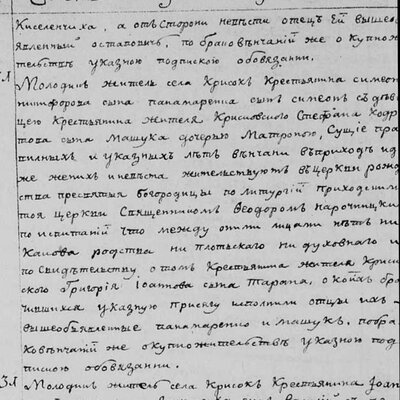 Киселенчиха, а отъ сторони невѣсти отецъ Ей вышео
явленный остаповичъ, по браковѣнчаніи же о купножи
тельствѣ указною подпискою обовязанни.
Молодикъ житель села Крисокъ Крестьянина симеона
никифорова сына панаматенка сынъ симеонъ съ дѣви
цею Крестьянина жителя Крисковского Стефана
това сына Машука дочерью Матроною, Сущіе пра
вилныхъ и указныхъ лѣтъ вѣнчани въ приходѣ ид
же женихъ и невѣста жительствуютъ въ церкви рожде
ства пресвятыя богородицы по литургіи приходским
тоя церкви Священникомъ Феодоромъ
по испитаніи что между оними лицами нѣтъ ни
Какова родства ни плотскаго ни духовнаго и
по свидѣтельству о томъ Крестьянина жителя Криско
вского Григорія Іоаннова сына Тарана, о коихъ бра
чившихся указную присягу исполнили отцы ихъ
вышеобъявленные и машукъ. по бра
ковѣнчаніи же о купножительствѣ указною под
пискою обовязанни.
Молодикъ житель села Крисокъ Крестьянина Іоан